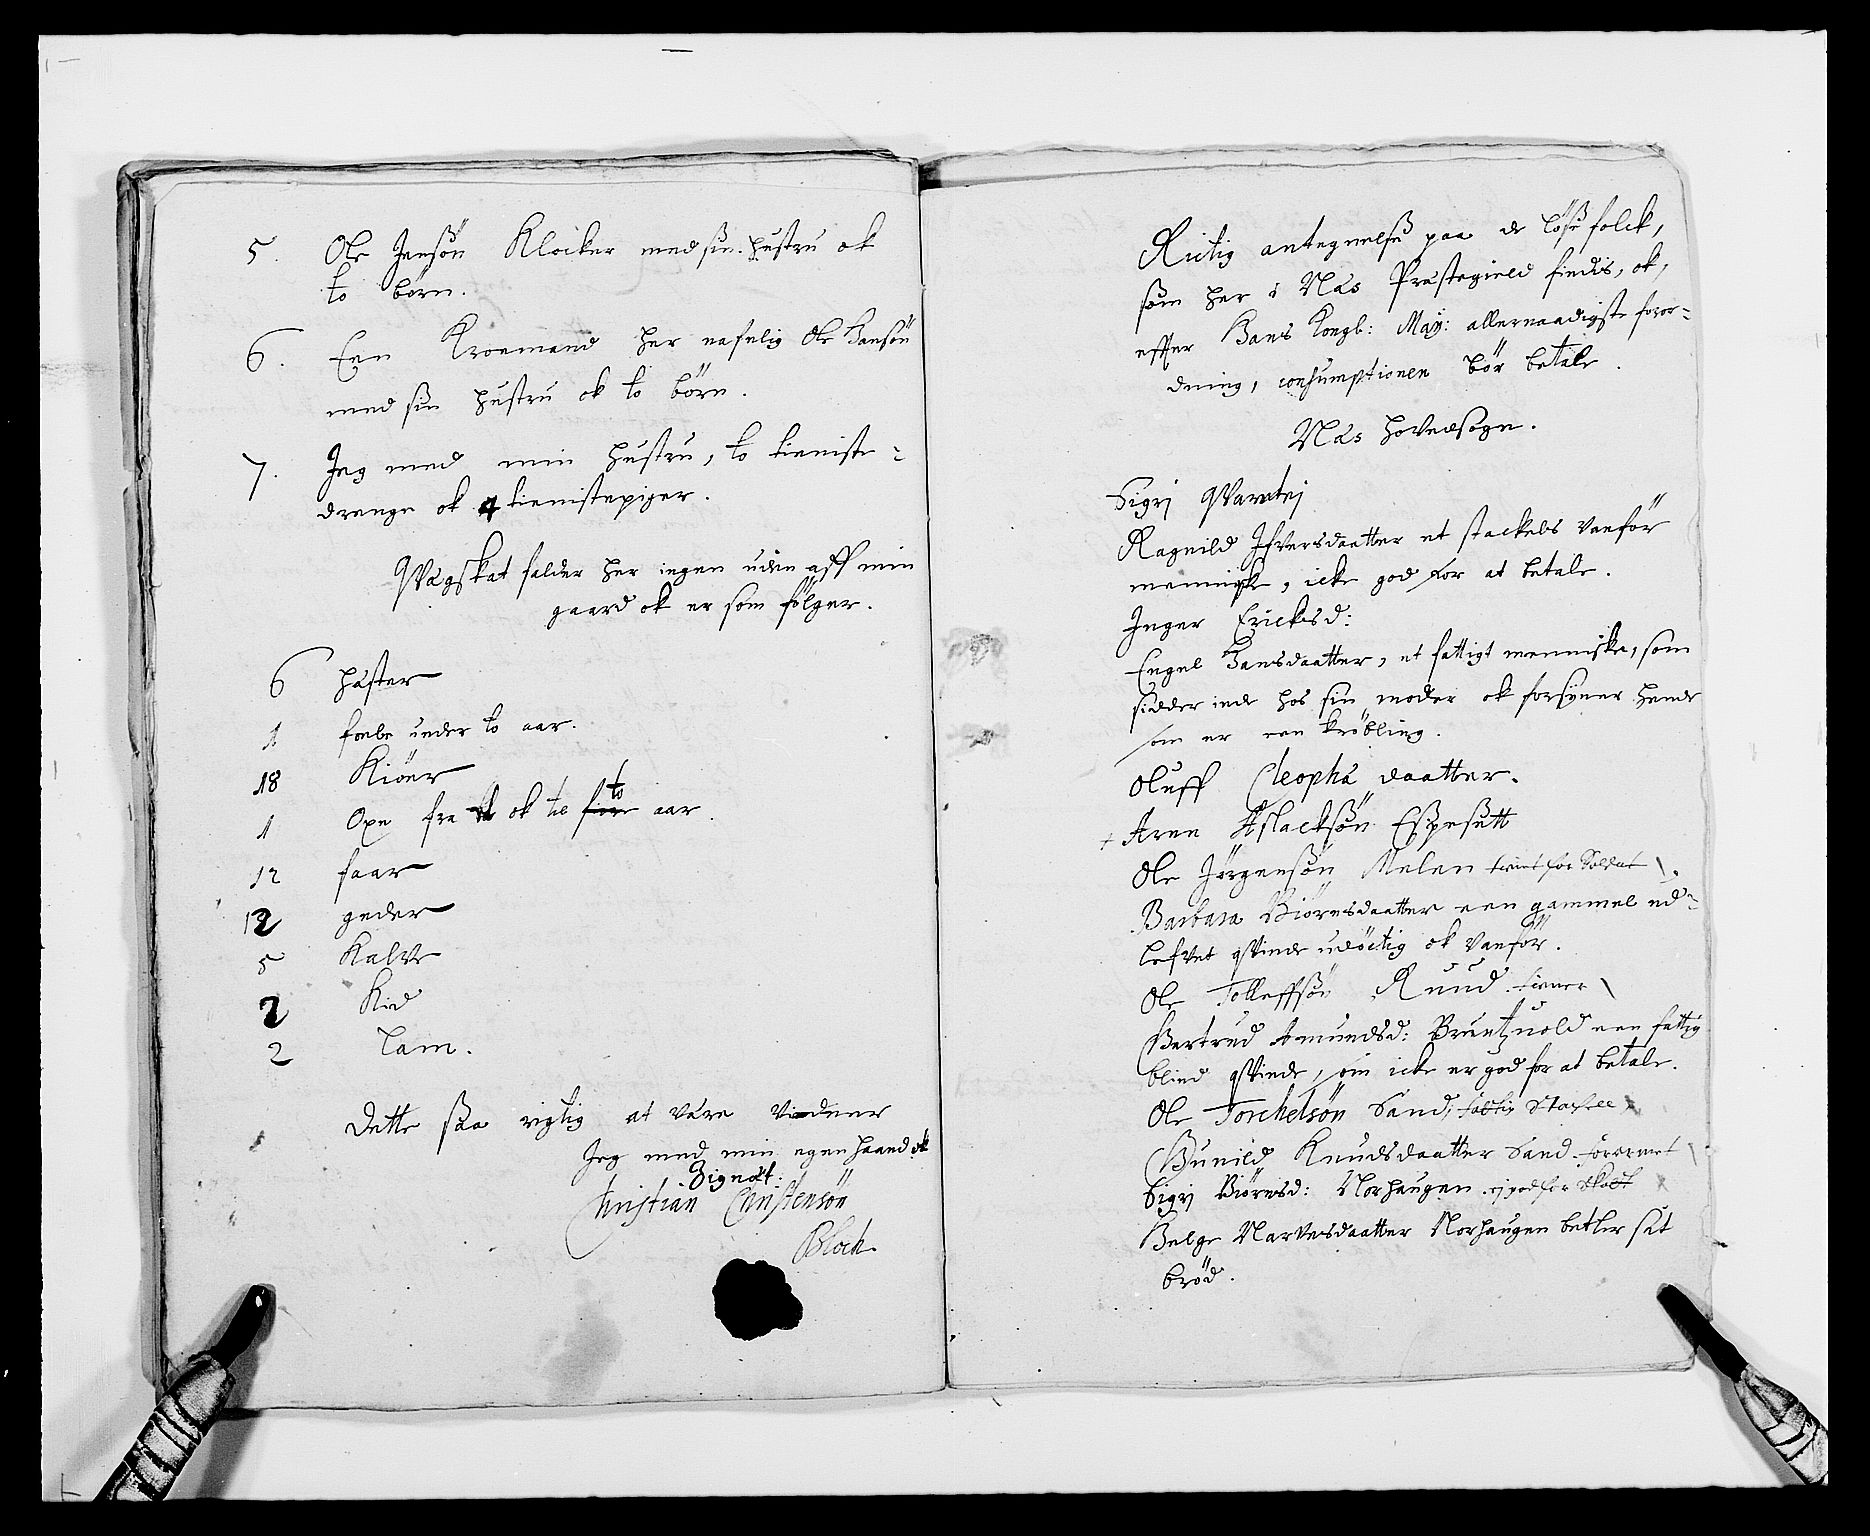 5. Ole Jensön Klocker med sin hustru ok
to börn.
6. Een Kroemand her nafnlig Ole Hansön
med sin hustru ok to börn.
7. Jeg med min hustru, to tieniste-
drenge ok 4 tienistepiger.
Qvægskat falder her ingen uden aff min
gaard ok er som fölger.
6 hæster
1 foele under to aar.
18 Kiöer
1 Oxe fra ok til to aar.
12 faar
12 geder
5 Kalve
2 Kid
2 Lam.
Dette saa rigtig at være vidner
Jeg med min egen haand ok
Signet:
Christian Christensön
Bloch.
Rictig antegnelse paa de löse folck,
som her i Næs Præstegield findis, ok,
effter Hans Kongl: May: allernaadigste foror-
dning, consumptionen bör betale.
Næs hovedsogn.
Sigri
Ragnild Ifversdaatter et stackels vanför
menniske, icke god for at betale.
Inger Ericksd:
Engel Hansdaatter, et fattigt menniske, som
sidder inde hos sin moder ok forsyner hende
som er een kröbling.
Oluff Cleophæ daatter.
+ Aren Aslacksön Espesett
Ole Jörgensön Melen tient for Soldat
Barbara Biörnsdaatter een gammel ud-
lefvet qvinde udöctig ok vanför.
Ole Tolleffsön Ruud. tiener
Bertrud Amundsd: Bruntzvold een fattig
blind qvinde, som icke er god for at betale.
Ole Torchelsön Sand, fattig
Gunild Knudsdaatter Sand.
Sigri Biörnsd: Norhaugen. ej god for skatt
Helge Narvesdaatter Norhaugen betler sit
bröd.